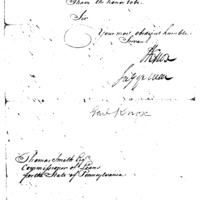 I have the honor to be
Sir
Your most obedient humble
Servant
H Knox
Genl Knox
Thomas Smith Esq
Commissioner of Loans
for the State of Pennsylvania